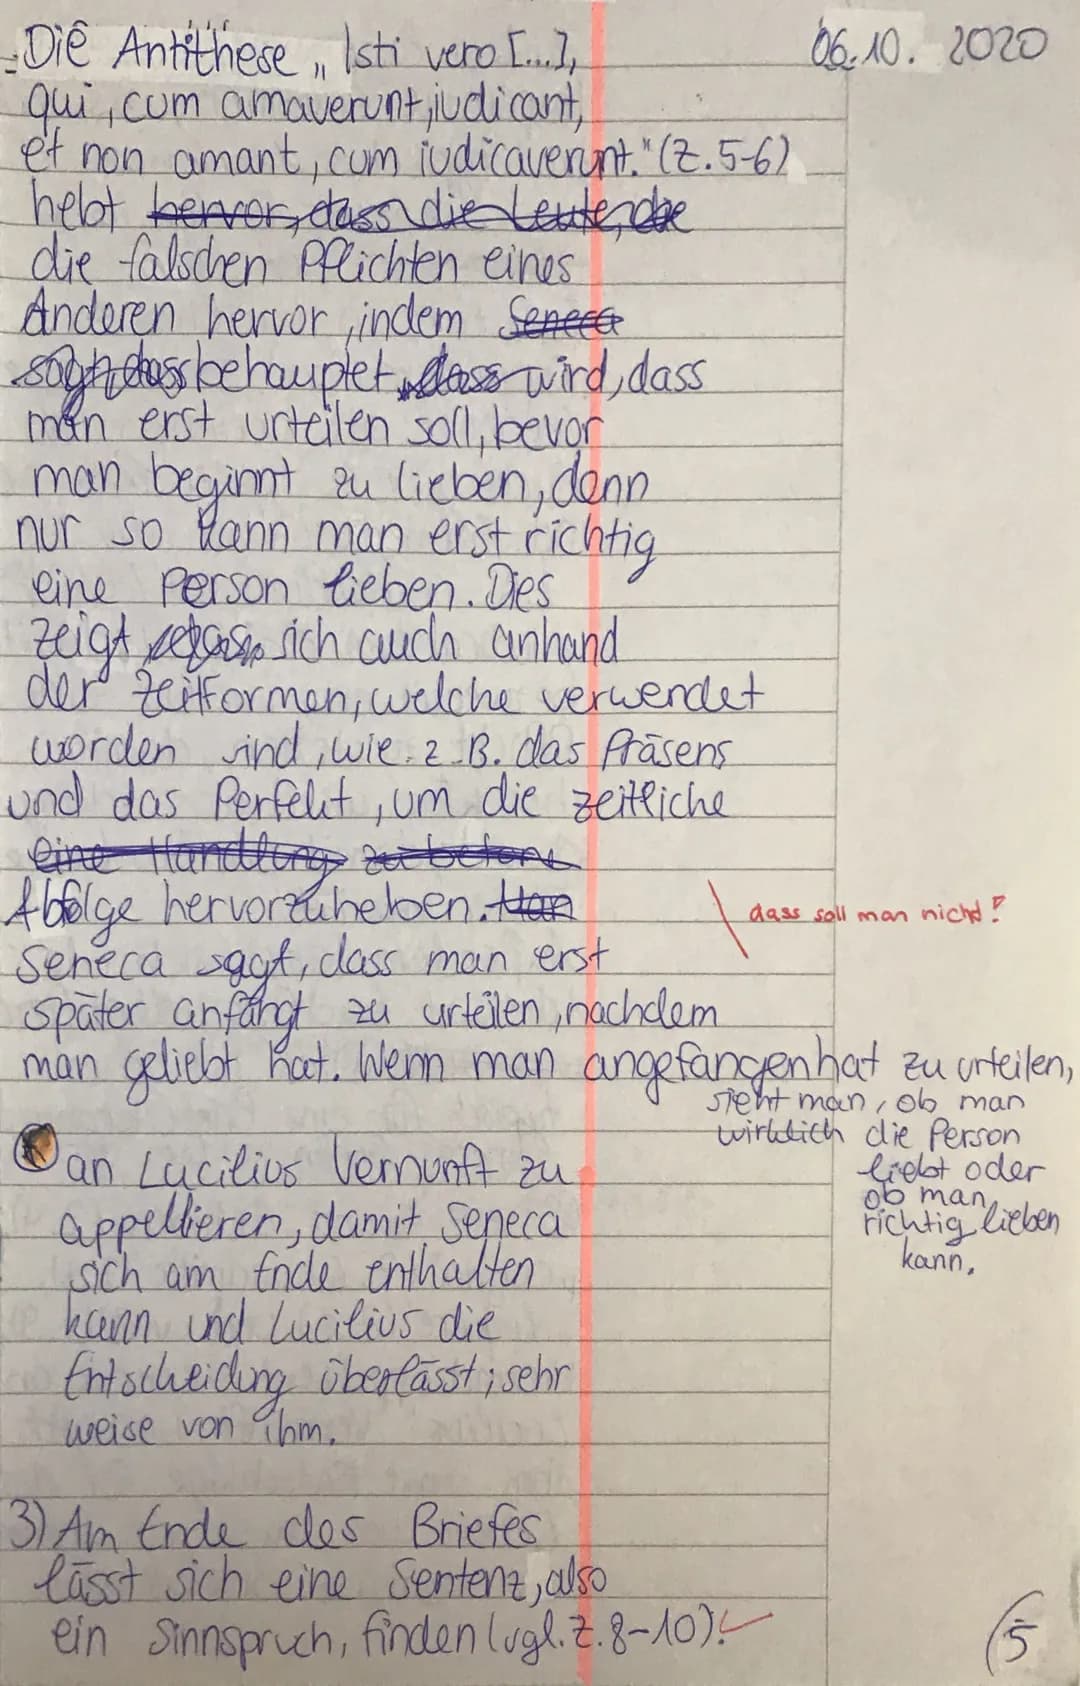 06.10. 2020
Die Antithese „Isti vero [...],
qui, cum amaverunt, iudicant,
et non amant, cum iudicaverunt." (Z.5-6)
hebt hervor, dass die Leute, die
die falschen Pflichten eines
Anderen hervor, indem Seneca
sagt, dass behauptet dass wird, dass
man erst urteilen soll, bevor
man beginnt zu lieben, denn
nur so kann man erst richtig
eine Person lieben. Dies
zeigt sich auch anhand
der Zeitformen, welche verwendet
worden sind, wie z.B. das Präsens
und das Perfekt, um die zeitliche
eine Handlung zu betone
Abfolge hervorzuheben. Man
dass soll man nicht!
Seneca sagt, dass man erst
später anfängt zu urteilen, nachdem
man geliebt hat. Wenn man angefangen hat zu urteilen,
sieht man, ob man
wirklich die Person
liebt oder
ob man
richtig lieben
kann.
an Lucilius Vernunft zu
appellieren, damit Seneca
sich am Ende enthalten
kann und Lucilius die
Entscheidung überlässt; sehr
weise von ihm.
3) Am Ende des Briefes
lässt sich eine Sentenz, also
ein Sinnspruch, finden (vgl. Z. 8-10).
5